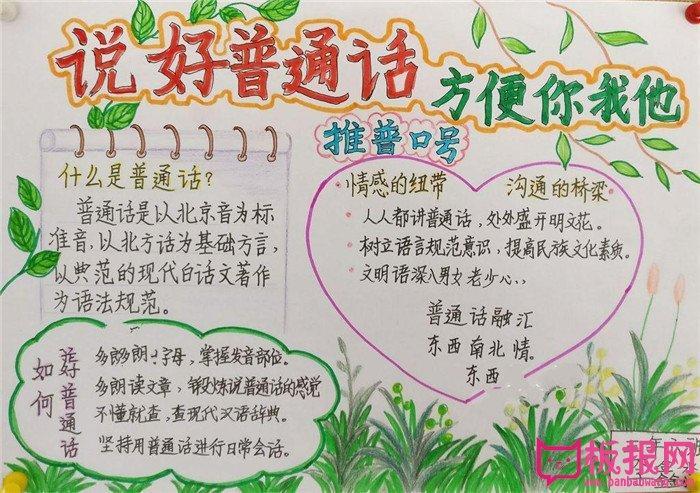 说好普通话
方便你我他
推普口号
什么是普通话?
普通话是以北京音为标
准音,以北方话为基础方言,
以典范的现代白话文著作
为语法规范。
·情感的纽带 沟通的桥梁
·人人都讲普通话,处处盛开明文花。
·树立语言规范意识,提高民族文化素质。
·文明语深入男女老少心、
普通话融汇
东西南北情。
东西
如何
好普通话
多朗 字母,掌握发音部位。
多朗读文章,锻炼说普通话的感觉
不懂就查,查现代汉语辞典。
坚持用普通话进行日常会话。
板报网
www.banbaowang.com